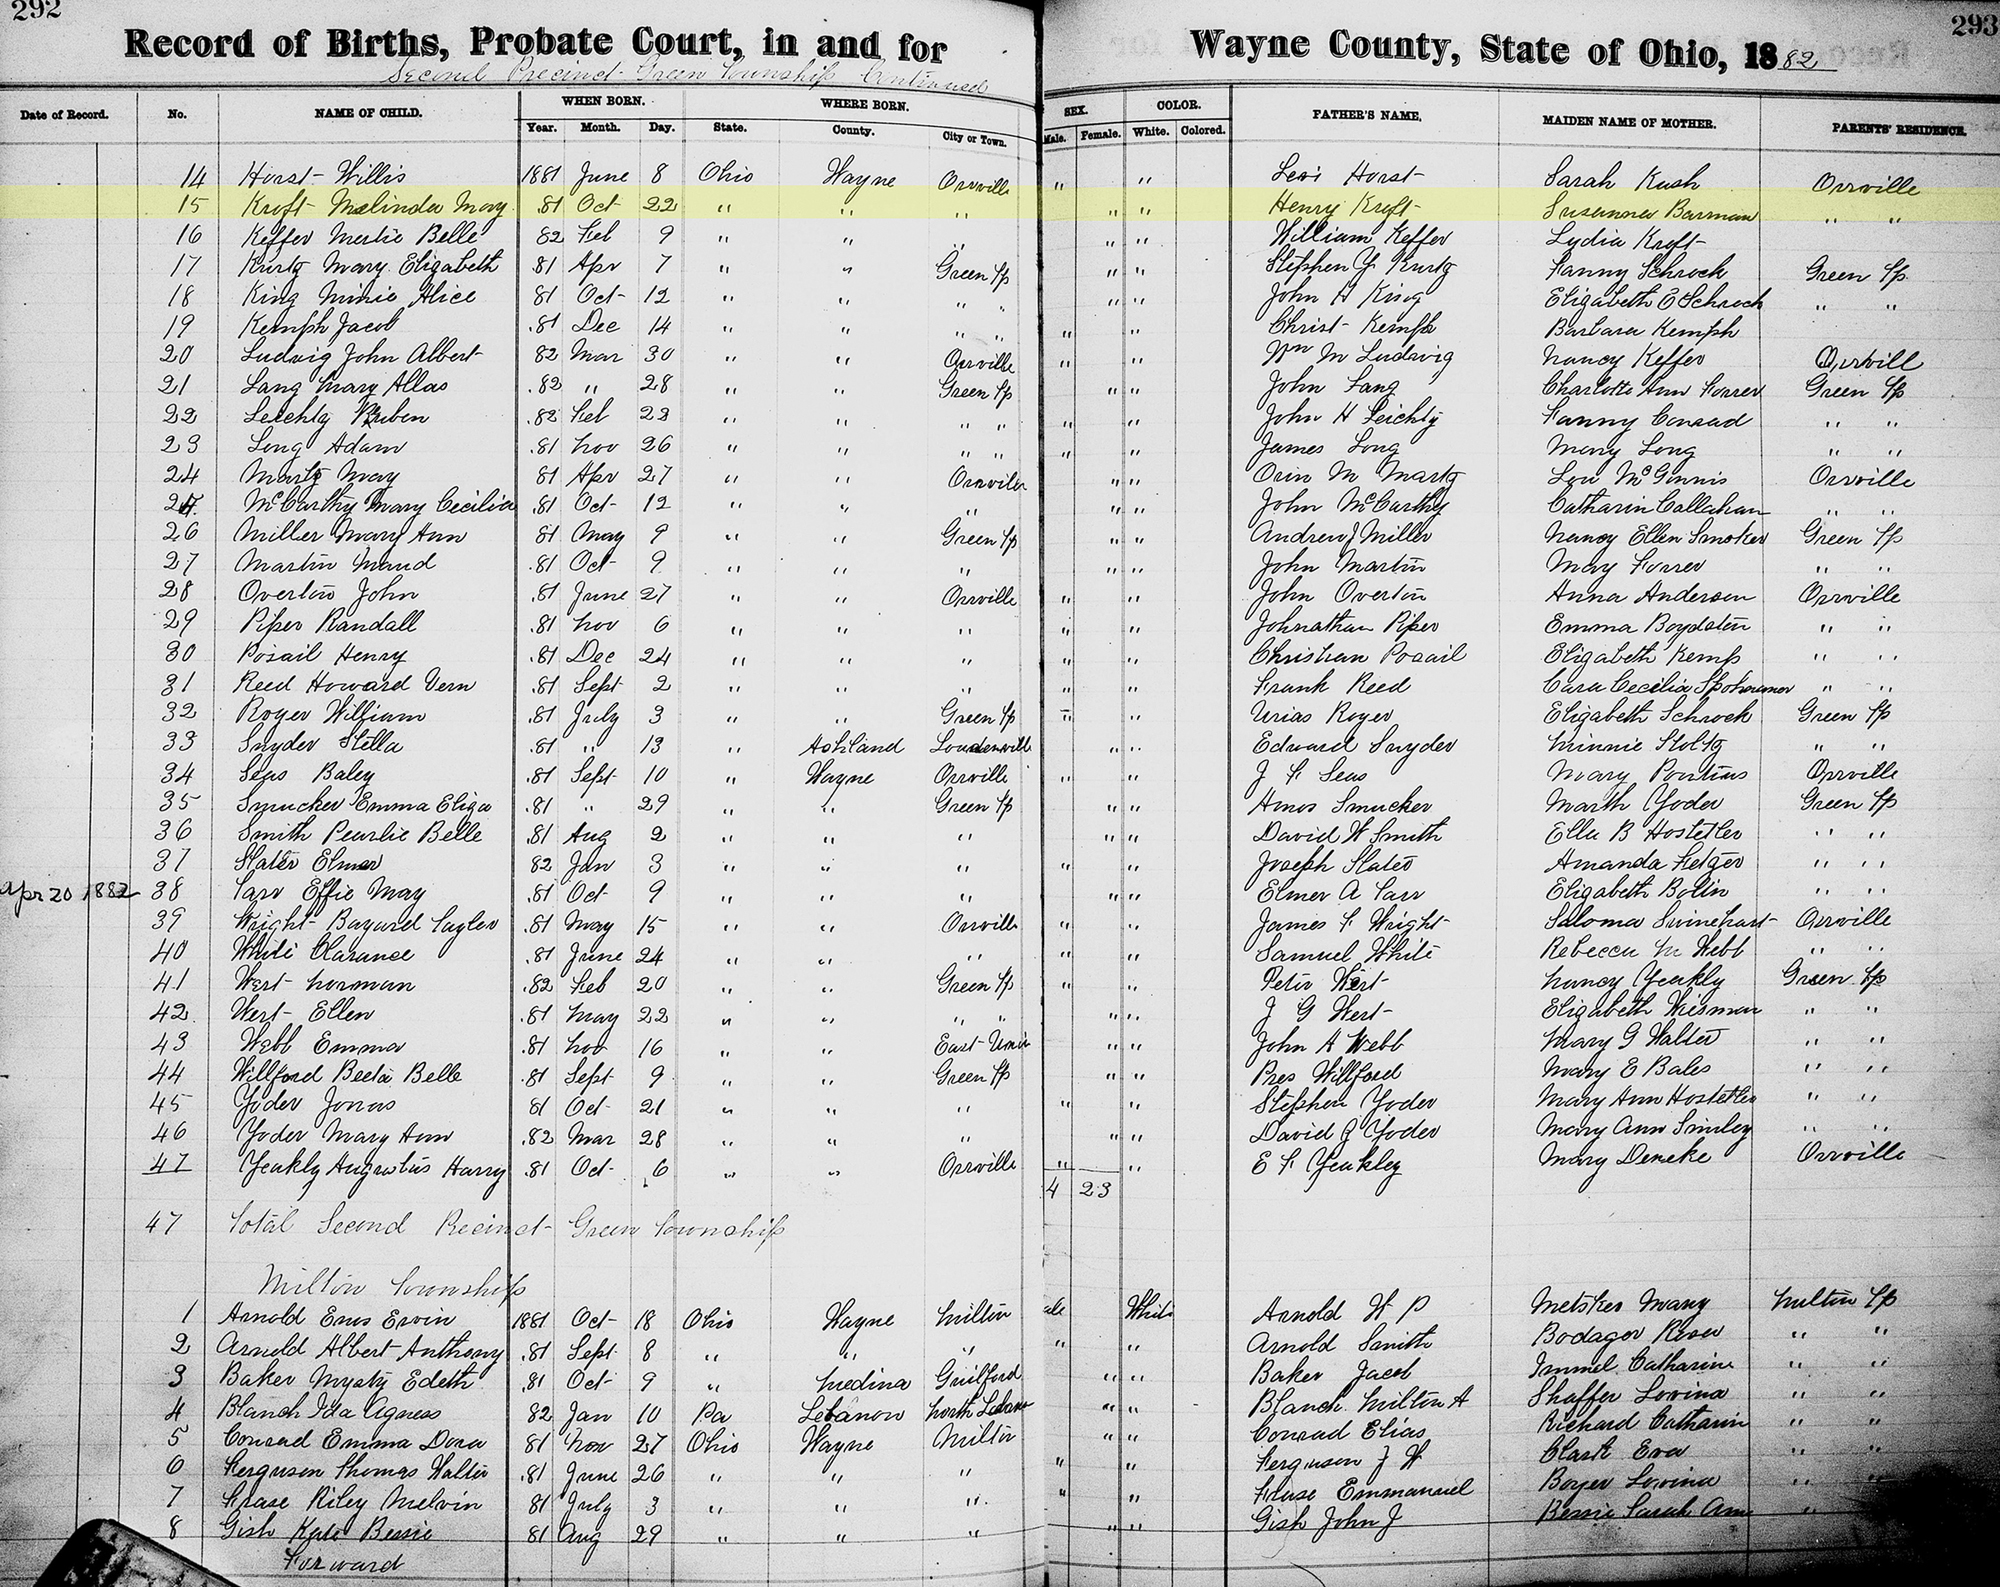 292
293
Record of Births, Probate Court, in and for Wayne County, State of Ohio, 1882
Second Precinct Green Township Continued
Date of Record. No. NAME OF CHILD. WHEN BORN. WHERE BORN. SEX. COLOR. FATHER'S NAME. MAIDEN NAME OF MOTHER. PARENTS' RESIDENCE.
Year. Month. Day. State. County. City or Town. Male. Female. White. Colored.
14 Horst Willis 1881 June 8 Ohio Wayne Orrville " " Levi Horst Sarah Kush Orrville
15 Kroft Malinda May 81 Oct 22 " " " " " Henry Kroft Susanna Barman " "
16 Keffer Mertie Belle 82 Feb 9 " " " " " William Keffer Lydia Kroft
17 Kurtz Mary Elizabeth 81 Apr 7 " " Green Tp " " Stephen Y Kurtz Fanny Schrock Green Tp
18 King Minie Alice 81 Oct 12 " " " " " " John H King Elizabeth E Schrock " "
19 Kemph Jacob 81 Dec 14 " " " " " " Christ Kemph Barbara Kemph
20 Ludwig John Albert 82 Mar 30 " " Orrville " " Wm M Ludwig Nancy Keffer Orrvill
21 Lang Mary Allas 82 " 28 " " Green Tp " " John Lang Charlotte Ann Forrer Green Tp
22 Leichty Ruben 82 Feb 22 " " " " " " John H Leichty Fanny Conrad " "
23 Long Adam 81 Nov 26 " " " " " " James Long Mary Long " "
24 Martz May 81 Apr 27 " " Orrville " " Orin M Martz Lou McGinnis Orrville
25 McCarthy Mary Cecilia 81 Oct 12 " " " " " John McCarthy Catharin Callahan " "
26 Miller Mary Ann 81 May 9 " " Green Tp " " Andrew J Miller Nancy Ellen Smoker Green Tp
27 Martin Maud 81 Oct 9 " " " " " John Martin May Forrer " "
28 Overton John 81 June 27 " " Orrville " " John Overton Anna Anderson Orrville
29 Piper Randall 81 Nov 6 " " " " " Johnathan Piper Emma Boydston " "
30 Posail Henry 81 Dec 24 " " " " " Christian Posail Elizabeth Kemp " "
31 Reed Howard Vern 81 Sept 2 " " " " " Frank Reed Cara Cecilia " "
32 Royer William 81 July 3 " " Green Tp " " Urias Royer Elizabeth Schrock Green Tp
33 Snyder Stella 81 " 13 " Ashland Loudenvill " " Edward Snyder Minnie Stoltz " "
34 Seas Baley 81 Sept 10 " Wayne Orrville " " J F Seas Mary Pontius Orrville
35 Smucker Emma Eliza 81 " 29 " " Green Tp " " Amos Smucker Marth Yoder Green Tp
36 Smith Pearlie Belle 81 Aug 2 " " " " " David W Smith Ella B Hostetler " "
37 Slater Elmer 82 Jan 3 " " " " " Joseph Slater Amanda Fetzer " "
Apr 20 1882 38 Tarr Effie May 81 Oct 9 " " " " " Elmer A Tarr Elizabeth Bolin " "
39 Wright Bayard Taylor 81 May 15 " " Orrville " " James F Wright Saloma Swinehart Orrville
40 White Clarance 81 June 24 " " " " " Samuel White Rebecca M Webb " "
41 Wert Norman 82 Feb 20 " " Green Tp " " Peter Wert Nancy Yeakly Green Tp
42 Wert Ellen 81 May 22 " " " " " " J G Wert Elizabeth Wisman " "
43 Webb Emma 81 Nov 16 " " East Union " " John A Webb Mary G Walter " "
44 Willford Beeta Belle 81 Sept 9 " " Green Tp " " Pres Willford Mary E Bales " "
45 Yoder Jonas 81 Oct 21 " " " " " Stephen Yoder Mary Ann Hostetler " "
46 Yoder Mary Ann 82 Mar 28 " " " " " David J Yoder Mary Ann Smiley " "
47 Yeakly Augustus Harry 81 Oct 6 " " Orrville " " E F Yeakley Mary Deneke Orrville
4 23
47 Total Second Precinct Green Township
Milton Township
1 Arnold Enos Ervin 1881 Oct 18 Ohio Wayne Milton ale White Arnold W P Metsker Mary Milton Tp
2 Arnold Albert Anthony 81 Sept 8 " " " " " Arnold Smith Bodager Rosa " "
3 Baker Mysty Edeth 81 Oct 9 " Medina Guilford " " Baker Jacob Immel Catharine " "
4 Blanch Ida Agness 82 Jan 10 Pa Lebanon North Lebanon " " Blanch Milton A Shaffer Lovina " "
5 Conrad Emma Dora 81 Nov 27 Ohio Wayne Milton " " Conrad Elias Richard Catharin " "
6 Ferguson Thomas Walter 81 June 26 " " " " " Ferguson J W Clark Eva " "
7 Frase Riley Melvin 81 July 3 " " " " " Frase Emmanuel Boyer Lovina " "
8 Gish Kate Bessie 81 Aug 29 " " " " " Gish John J Bessie Sarah Ann "
Forward